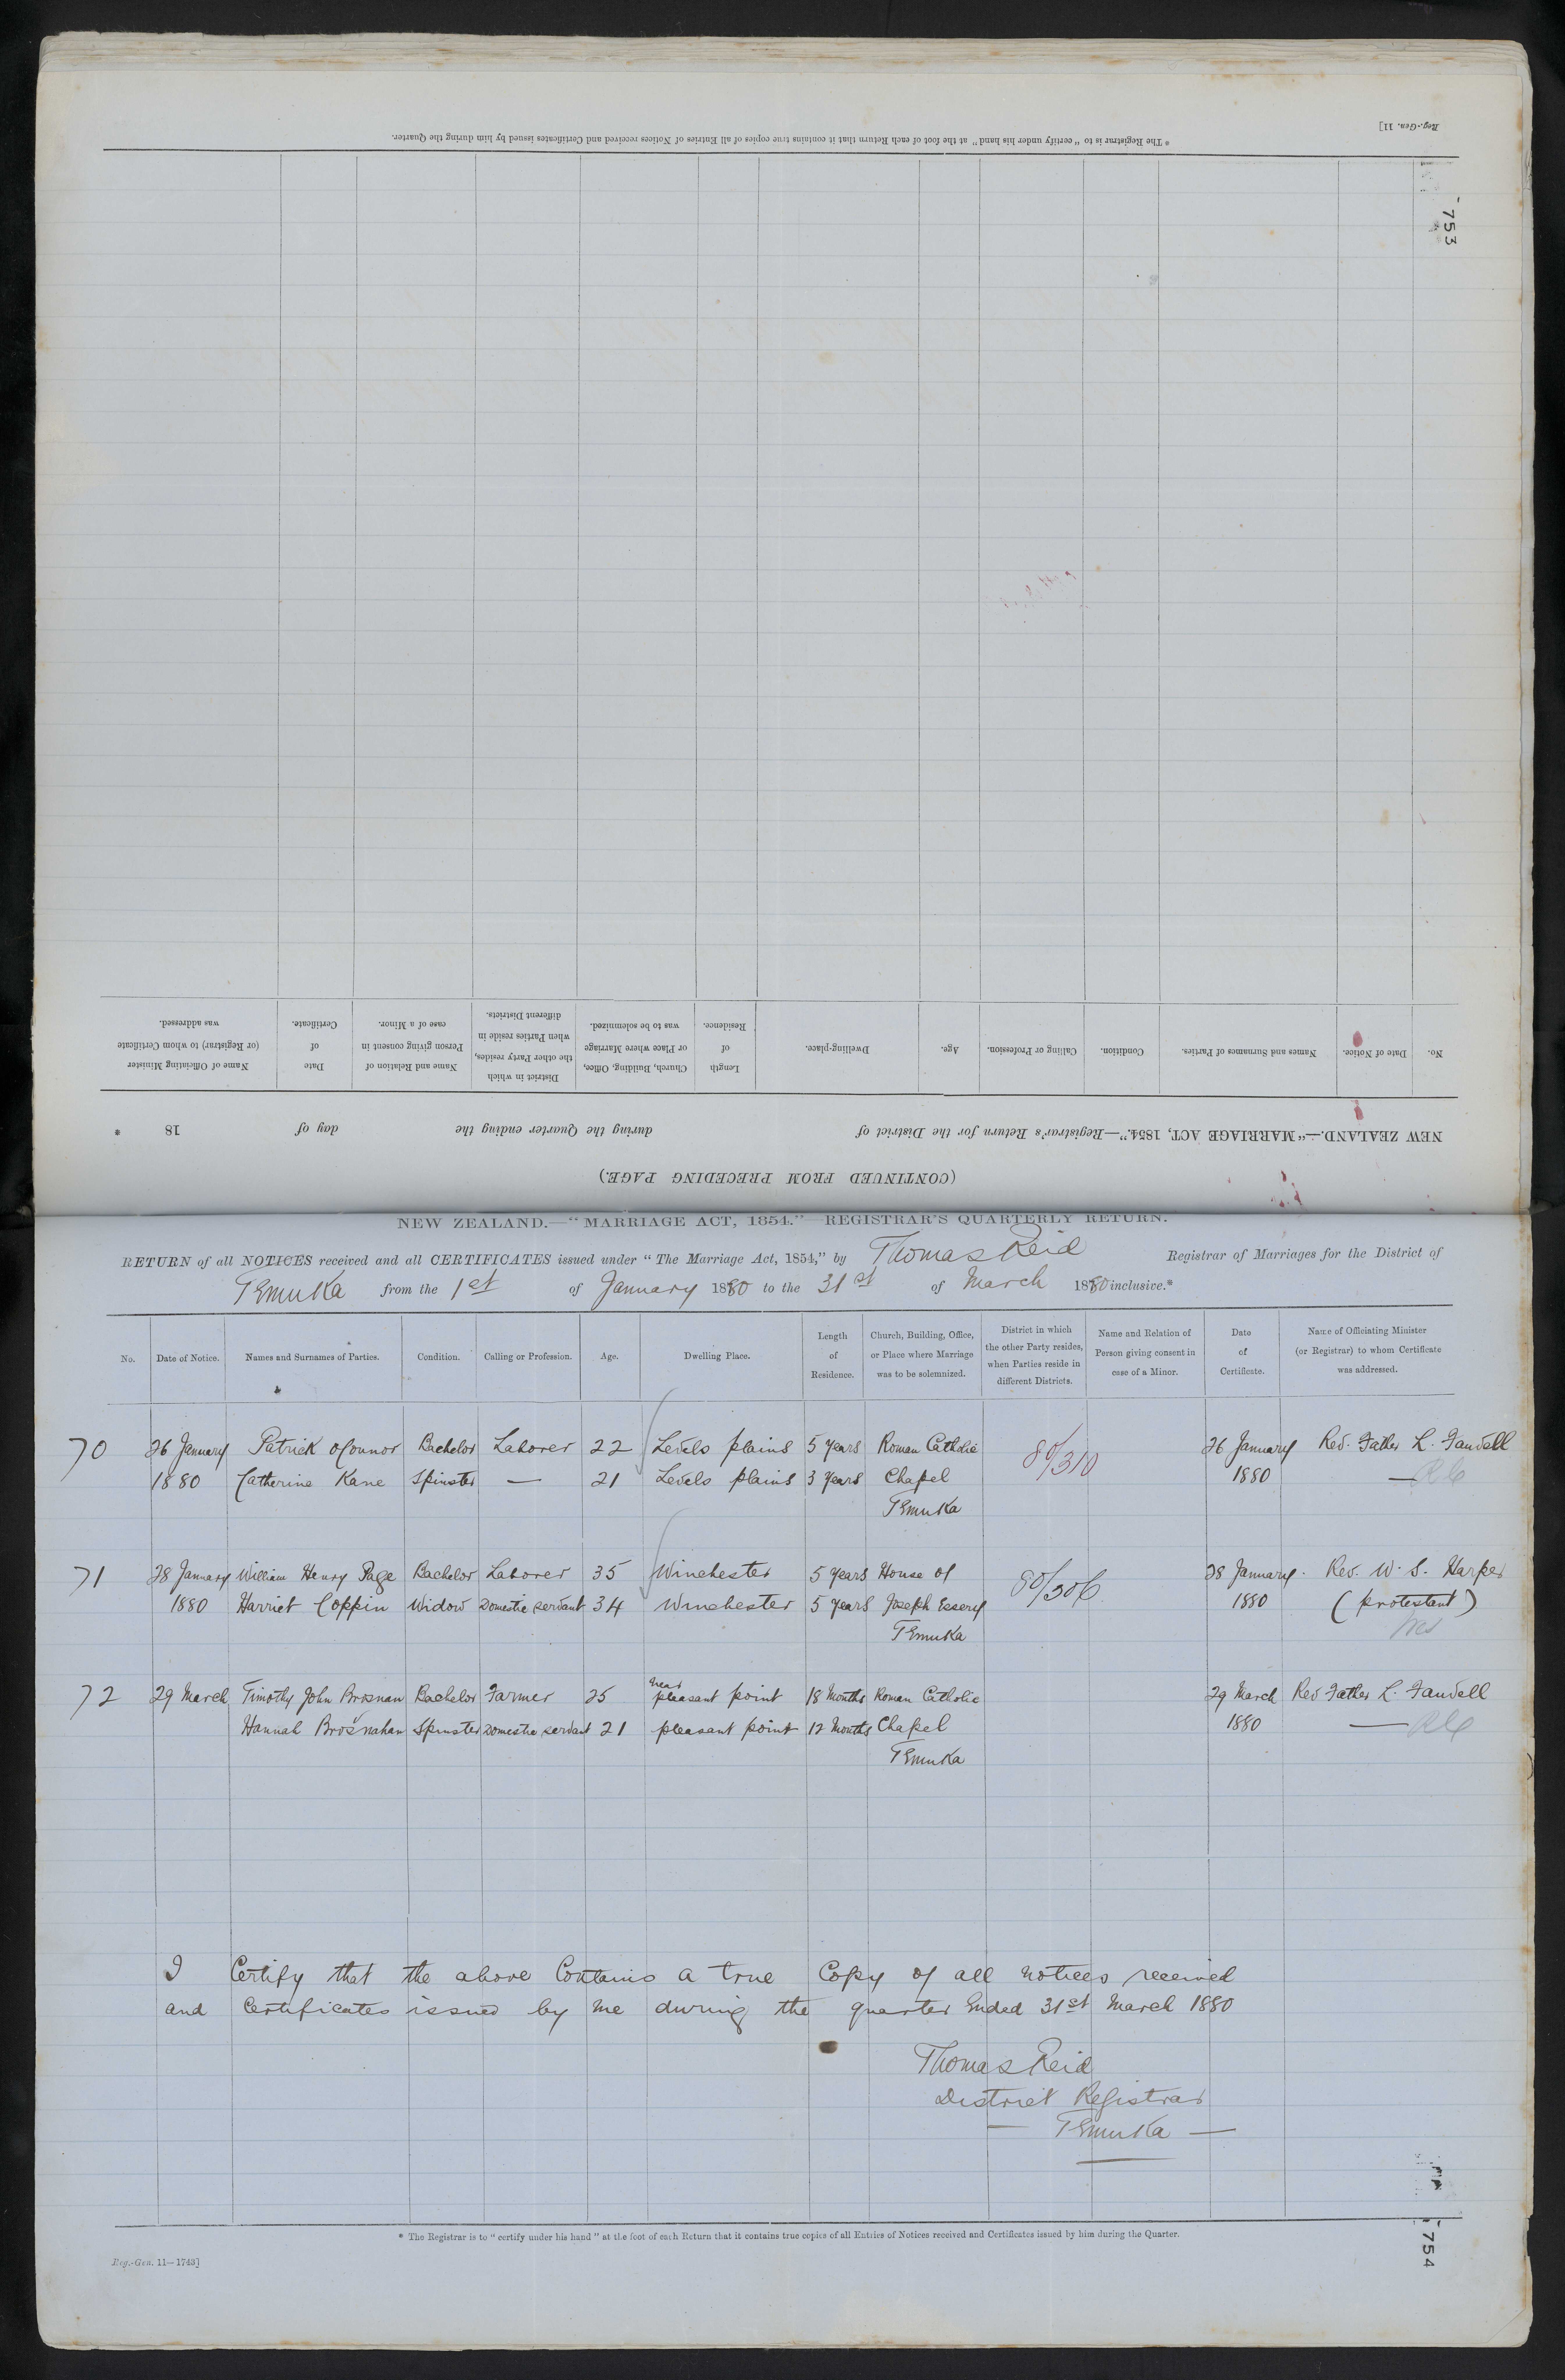 * The Registrar is to "certify under his hand" at the foot of each Return that it contains true copies of all Entries of Notices received and Certificates issued by him during the Quarter.
Reg.-Gen. 11]
753
No. Date of Notice. Names and Surnames of Parties. Condition. Calling or Profession. Age. Dwelling-place. Length of Residence. Church, Building, Office, or Place where Marriage was to be solemnized. District in which the other Party resides, when Parties reside in different Districts. Name and Relation of Person giving consent in case of a Minor. Date of Certificate. Name of Officiating Minister (or Registrar) to whom Certificate was addressed.
NEW ZEALAND.—"MARRIAGE ACT, 1854."—Registrar's Return for the District of during the Quarter ending the day of 18 *
(CONTINUED FROM PRECEDING PAGE.)
NEW ZEALAND.—"MARRIAGE ACT, 1854."—REGISTRAR'S QUARTERLY RETURN.
RETURN of all NOTICES received and all CERTIFICATES issued under "The Marriage Act, 1854," by Thomas Reid Registrar of Marriages for the District of
Temuka from the 1st of January 1880 to the 31st of March 1880 inclusive.*
No. Date of Notice. Names and Surnames of Parties. Condition. Calling or Profession. Age. Dwelling Place. Length of Residence. Church, Building, Office, or Place where Marriage was to be solemnized. District in which the other Party resides, when Parties reside in different Districts. Name and Relation of Person giving consent in case of a Minor. Date of Certificate. Name of Officiating Minister (or Registrar) to whom Certificate was addressed.
70 26 January Patrick oConnor Bachelor Laborer 22 Levels plains 5 years Roman Catholic 80/310 26 January Rev. Father L. Fauvell
1880 Catherine Kane Spinster — 21 Levels plains 3 years Chapel 1880 — RC
Temuka
71 28 January William Henry Page Bachelor Laborer 35 Winchester 5 years House of 80/306 28 January. Rev. W. S. Harper
1880 Harriet Coppin Widow Domestic servant 34 Winchester 5 years Joseph Essery 1880 (protestant)
Temuka Wes
72 29 March Timothy John Brosnan Bachelor Farmer 25 near pleasant point 18 Months Roman Catholic 29 March Rev Father L. Fauvell
Hannah Brosnahan Spinster Domestic servant 21 pleasant point 12 Months Chapel 1880 — RC
Temuka
I Certify that the above Contains a true Copy of all notices received
and Certificates issued by me during the quarter Ended 31st March 1880
Thomas Reid
District Registrar
— Temuka —
* The Registrar is to "certify under his hand" at the foot of each Return that it contains true copies of all Entries of Notices received and Certificates issued by him during the Quarter.
Reg.-Gen. 11—1743]
754